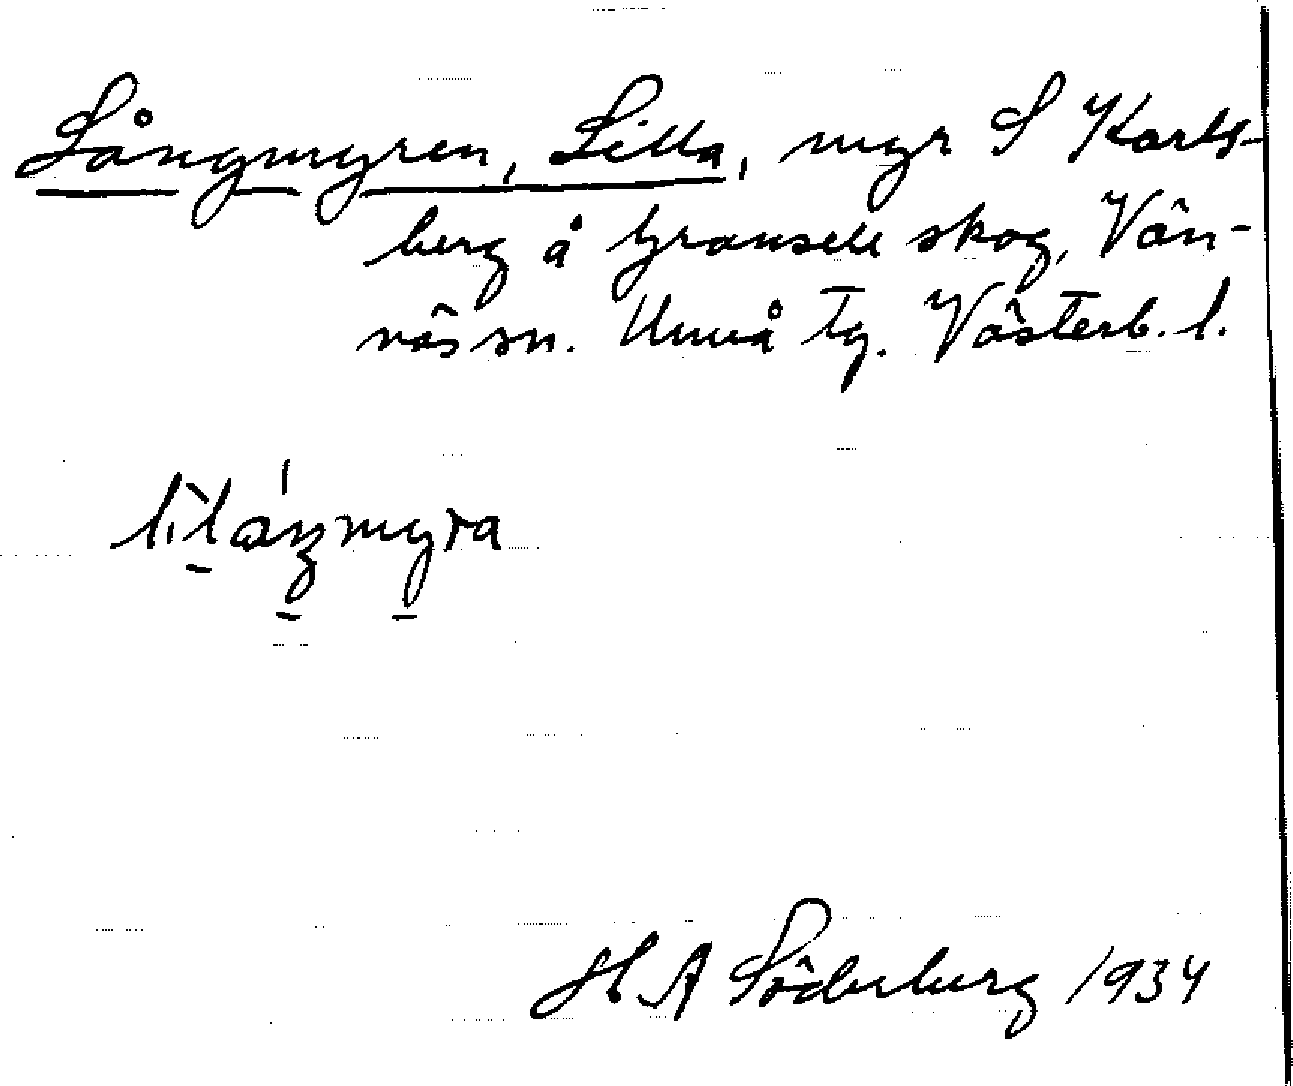 Långmyren, Lilla, myr S Karls-
berg å Gransele skog, Vän-
näs sn. Umeå tg. Västerb. l.
lìláŋmyra
H A Söderberg 1934